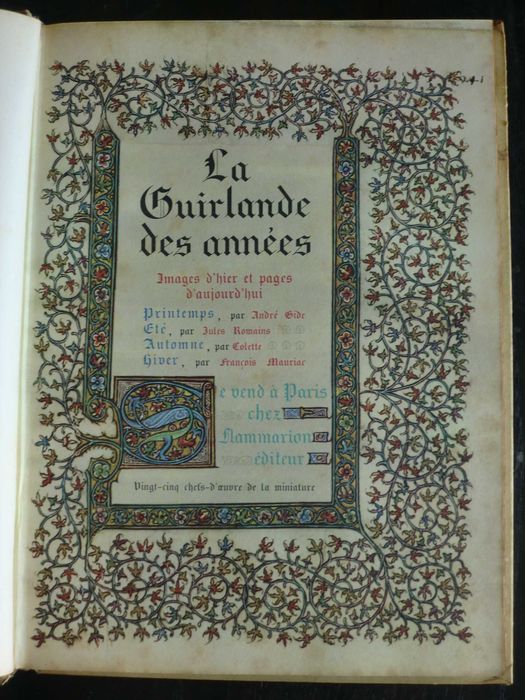 La
Guirlande
des années
Images d'hier et pages
d'aujourd'hui
Printemps, par André Gide
Eté, par Jules Romains
Automne, par Colette
Hiver, par François Mauriac
Se vend à Paris
chez
Flammarion
éditeur
Vingt-cinq chefs-d'œuvre de la miniature